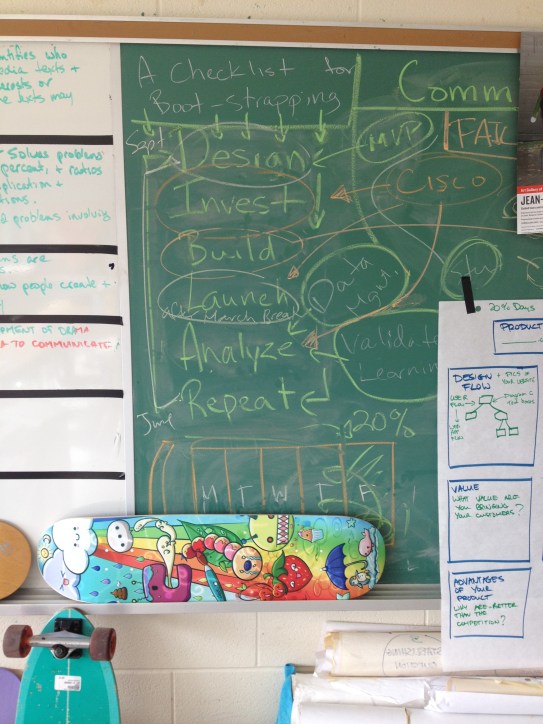 A Checklist for
Boot-strapping
Sept
Design
Invest
Build
Launch
after March Break
Analyze
Repeat
June
20%
M T W T F
Comm
MVP
FAIL
Cisco
Data
Mgt.
Learnin
who
texts +
or
texts may
Solves problems
percent, + ratios
+
problems involving
are
how people create +
OF DRAMA
TO COMMUNICATE
JEAN-
20% Days
PRODUCT
DESIGN
FLOW
+ PICS OF
YOUR WEBSITE
USER
FLOW
VALUE
WHAT VALUE ARE
YOU BRINGING
YOUR CUSTOMERS?
ADVANTAGES
OF YOUR
PRODUCT
WHY ARE BETTER
THAN THE
COMPETITION?